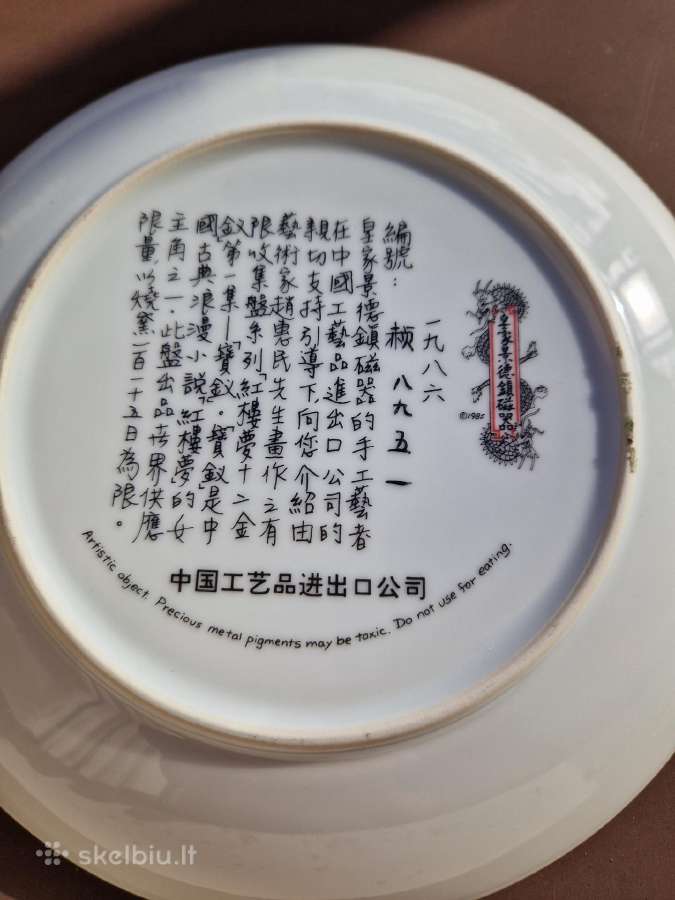 皇家景德鎮磁器
©1985
一九八六
八九五一
編號：
皇家景德鎮磁器的手工藝者
在中國工藝品進出口公司的
親切支持引導下，向您介紹由
藝術家趙惠民先生畫作之有
限收集盤系列「紅樓夢十二金
釵」第一集—「寶釵」。「寶釵」是中
國古典浪漫小說「紅樓夢」的女
主角之一。此盤出品世界供應
限量，以燒窯一百一十五日為限。
中国工艺品进出口公司
Artistic object. Precious metal pigments may be toxic. Do not use for eating.
skelbiu.lt